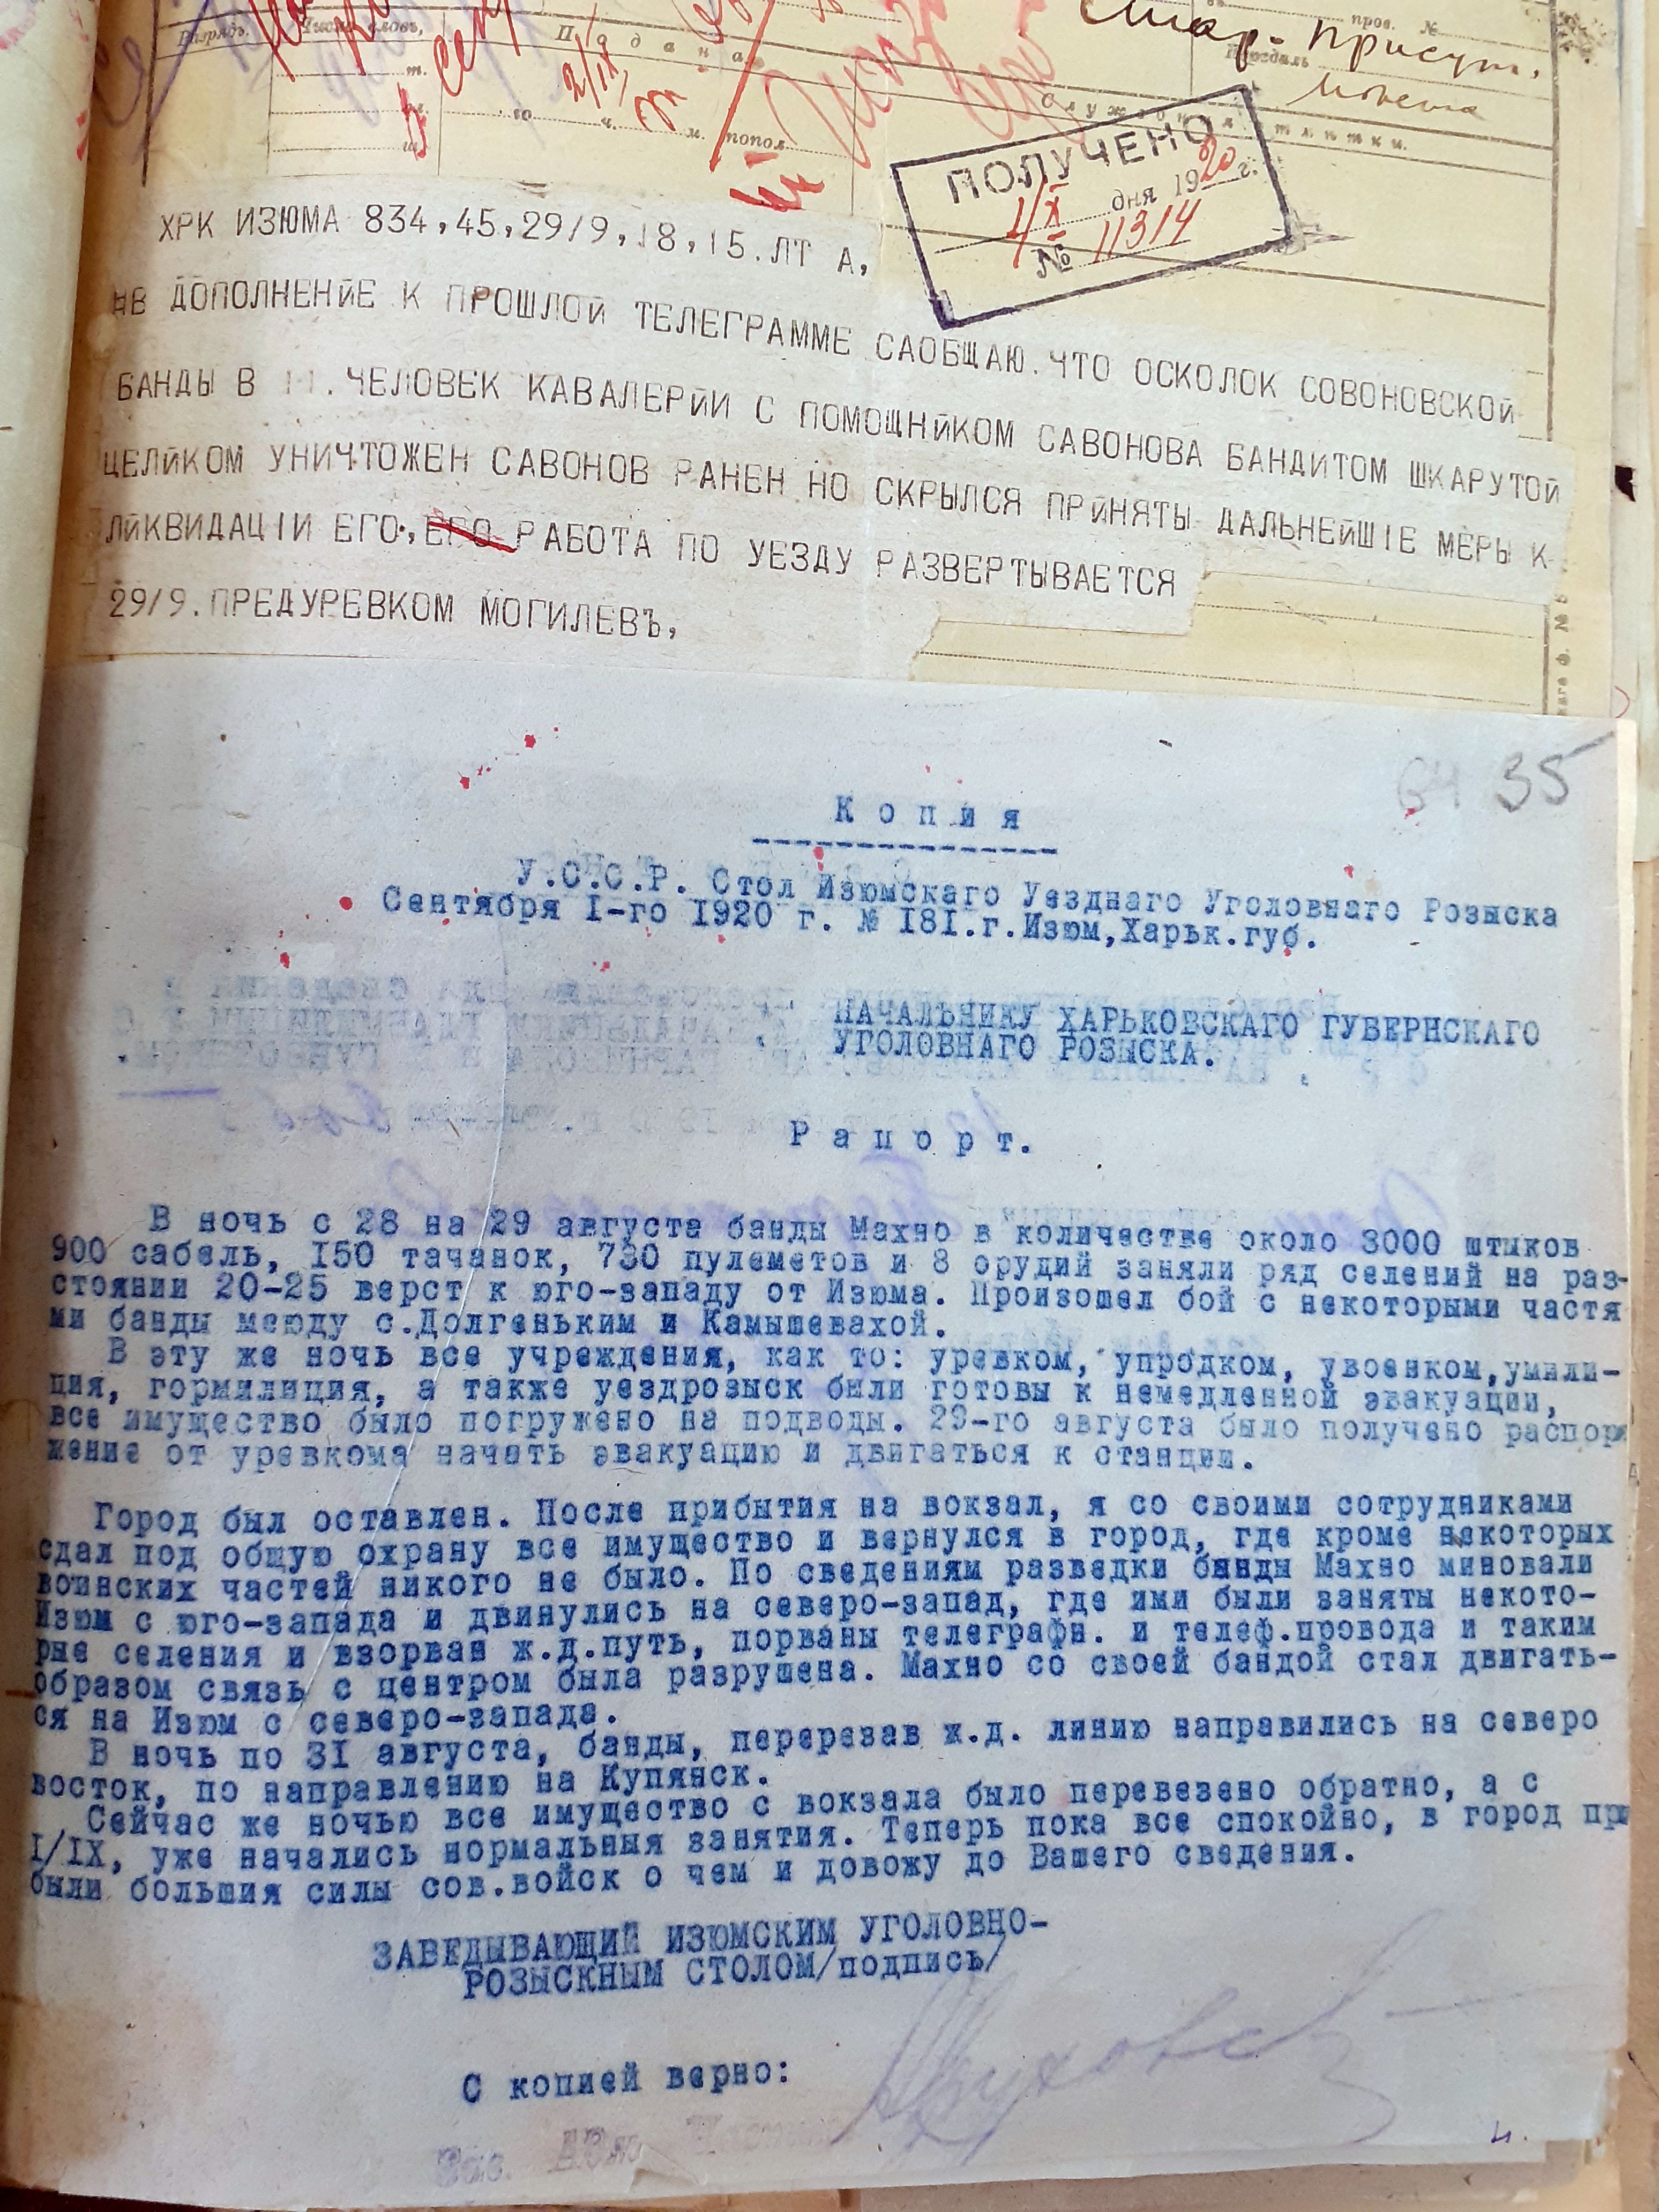 Разрядъ.
Число словъ,
Подана
2/IX
го ч. м. попол.
пров. №
Служебныя отметки.
ПОЛУЧЕНО
1/X дня 1920 г.
№ 11314
ХРК ИЗЮМА 834,45,29/9,18,15.ЛТ А,
НВ ДОПОЛНЕНЙЕ К ПРОШЛОЙ ТЕЛЕГРАММЕ САОБЩАЮ.ЧТО ОСКОЛОК СОВОНОВСКОЙ
БАНДЫ В 11.ЧЕЛОВЕК КАВАЛЕРЙИ С ПОМОЩНЙКОМ САВОНОВА БАНДИТОМ ШКАРУТОЙ
ЦЕЛЙКОМ УНИЧТОЖЕН САВОНОВ РАНЕН НО СКРЫЛСЯ ПРЙНЯТЫ ДАЛЬНЕЙШIЕ МЕРЫ К
ЛЙКВИДАЦIИ ЕГО.,ЕГО РАБОТА ПО УЕЗДУ РАЗВЕРТЫВАЕТСЯ
29/9.ПРЕДУРЕВКОМ МОГИЛЕВЪ,
35
Копия
У.С.С.Р. Стол Изюмскаго Уезднаго Уголовнаго Розыска
Сентября I-го I920 г. № I8I.г.Изюм,Харьк.губ.
НАЧАЛЬНИКУ ХАРЬКОВСКАГО ГУБЕРНСКАГО
УГОЛОВНАГО РОЗЫСКА.
Рапорт.
В ночь с 28 на 29 августа банды Махно в количестве около 3000 штыков
900 сабель, I50 тачанок, 730 пулеметов и 8 орудий заняли ряд селений на раз-
стоянии 20-25 верст к юго-западу от Изюма. Произошел бой с некоторыми частя
ми банды между с.Долгеньким и Камышевахой.
В эту же ночь все учреждения, как то: уревком, упродком, увоенком,умили-
ция, гормилиция, а также уездрозыск были готовы к немедленной эвакуации,
все имущество было погружено на подводы. 29-го августа было получено распоря
жение от уревкома начать эвакуацию и двигаться к станции.
Город был оставлен. После прибытия на вокзал, я со своими сотрудниками
сдал под общую охрану все имущество и вернулся в город, где кроме некоторых
воинских частей никого не было. По сведениям разведки банды Махно миновали
Изюм с юго-запада и двинулись на северо-запад, где ими были заняты некото-
рые селения и взорван ж.д.путь, порваны телеграфн. и телеф.провода и таким
образом связь с центром была разрушена. Махно со своей бандой стал двигать-
ся на Изюм с северо-запада.
В ночь по 3I августа, банды, перерезав ж.д. линию направились на северо
восток, по направлению на Купянск.
Сейчас же ночью все имущество с вокзала было перевезено обратно, а с
I/IX, уже начались нормальныя занятия. Теперь пока все спокойно, в город при
были большия силы сов.войск о чем и довожу до Вашего сведения.
ЗАВЕДЫВАЮЩИЙ ИЗЮМСКИМ УГОЛОВНО-
РОЗЫСКНЫМ СТОЛОМ/подпись/
С копией верно: